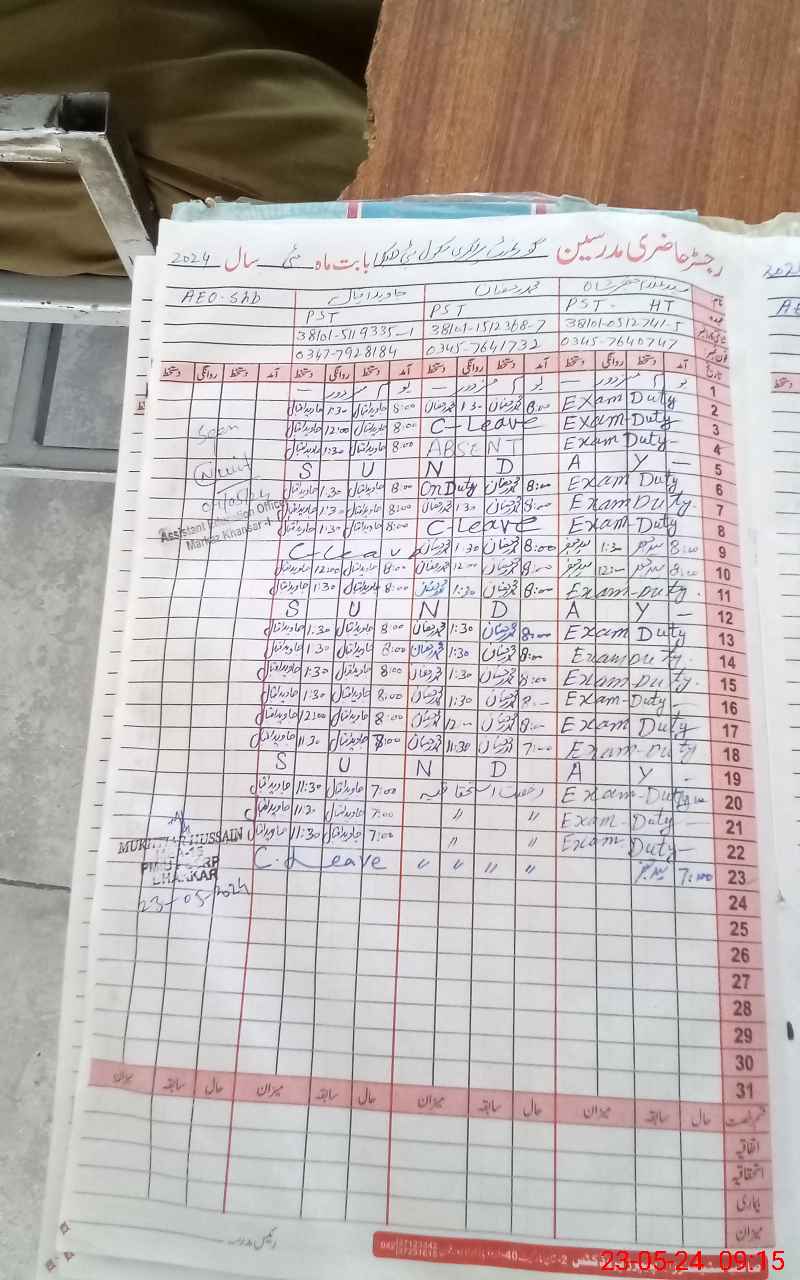 رجسٹر حاضری مدرسین گورنمنٹ پرائمری سکول بابت ماہ مئی سال 2024
نام محمد رمضان جاوید اقبال AEO-Shb
عہدہ PST - HT PST PST
38101-0512741-5 38101-1512368-7 38101-5119335-1
0345-7640747 0345-7641732 0347-7928184
تاریخ آمد دستخط روانگی دستخط آمد دستخط روانگی دستخط آمد دستخط روانگی دستخط آمد دستخط روانگی دستخط
1 یوم مزدور یوم مزدور یوم مزدور
2 Exam Duty 8:00 محمد رمضان 1:30 محمد رمضان 8:00 جاوید اقبال 1:30 جاوید اقبال
3 Exam-Duty C-Leave 8:00 جاوید اقبال 12:00 جاوید اقبال
4 Exam Duty- ABSENT 8:00 جاوید اقبال 1:30 جاوید اقبال
5 S U N D A Y
6 Exam Duty 8:00 محمد رمضان On Duty 8:00 جاوید اقبال 1:30 جاوید اقبال
7 Exam Duty. 8:00 محمد رمضان 1:30 محمد رمضان 8:00 جاوید اقبال 1:30 جاوید اقبال
8 Exam-Duty C-Leave 8:00 جاوید اقبال 1:30 جاوید اقبال
9 8:00 1:30 8:00 محمد رمضان 1:30 محمد رمضان C-Leave
10 8:00 12:00 8:00 محمد رمضان 12:00 محمد رمضان 8:00 جاوید اقبال 12:00 جاوید اقبال
11 Exam-Duty. 8:00 محمد رمضان 1:30 محمد رمضان 8:00 جاوید اقبال 1:30 جاوید اقبال
12 S U N D A Y
13 Exam Duty 8:00 محمد رمضان 1:30 محمد رمضان 8:00 جاوید اقبال 1:30 جاوید اقبال
14 Exam Duty. 8:00 محمد رمضان 1:30 محمد رمضان 8:00 جاوید اقبال 1:30 جاوید اقبال
15 Exam-Duty. 8:00 محمد رمضان 1:30 محمد رمضان 8:00 جاوید اقبال 1:30 جاوید اقبال
16 Exam-Duty 8:00 محمد رمضان 1:30 محمد رمضان 8:00 جاوید اقبال 1:30 جاوید اقبال
17 Exam Duty 8:00 محمد رمضان 12:00 محمد رمضان 8:00 جاوید اقبال 12:00 جاوید اقبال
18 Exam-Duty 7:00 محمد رمضان 11:30 محمد رمضان 8:00 جاوید اقبال 11:30 جاوید اقبال
19 S U N D A Y
20 Exam-Duty رخصت استحقاقیہ 7:00 جاوید اقبال 11:30 جاوید اقبال
21 Exam-Duty- 〃 〃 7:00 جاوید اقبال 11:30 جاوید اقبال
22 Exam Duty- 〃 〃 7:00 جاوید اقبال 11:30 جاوید اقبال
23 7:00 〃 〃 〃 〃 C. Leave
24
25
26
27
28
29
30
31
Seen
Assistant Education Officer
Markaz Khansar
MUKHTIAR HUSSAIN
BHAKKAR
23-05-2024
قسم رخصت حال سابقہ میزان حال سابقہ میزان حال سابقہ میزان حال سابقہ میزان
اتفاقیہ
استحقاقیہ
بیماری
میزان
رئیس مدرسہ
23-05-24 09:15